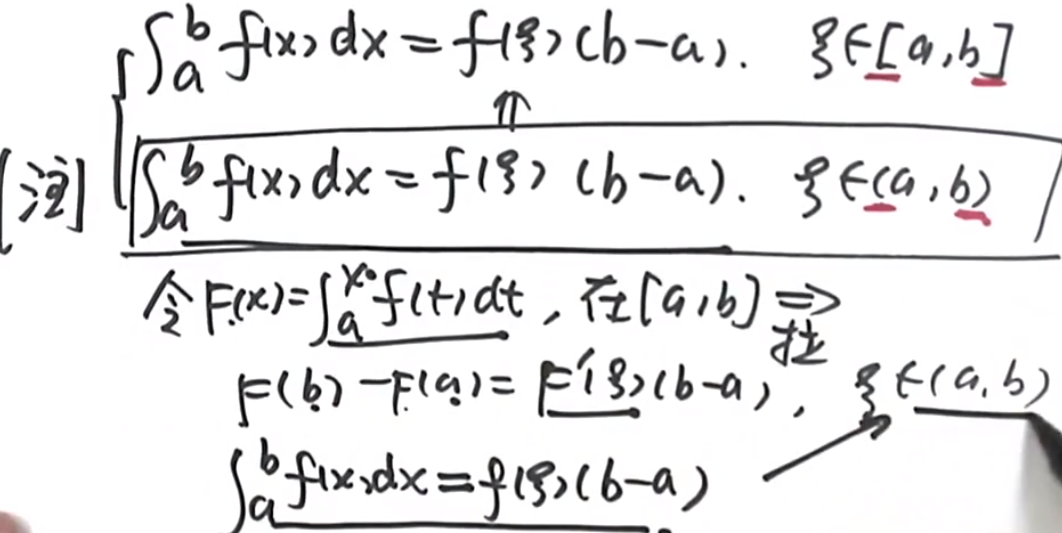 ∫ₐᵇ f(x)dx = f(ξ)(b-a). ξ∈[a,b]
⇑
[注] ∫ₐᵇ f(x)dx = f(ξ)(b-a). ξ∈(a,b)
令F(x)=∫ₐˣ f(t)dt, 在[a,b] ⇒
拉
F(b)-F(a)=F'(ξ)(b-a), ξ∈(a,b)
∫ₐᵇ f(x)dx=f(ξ)(b-a)